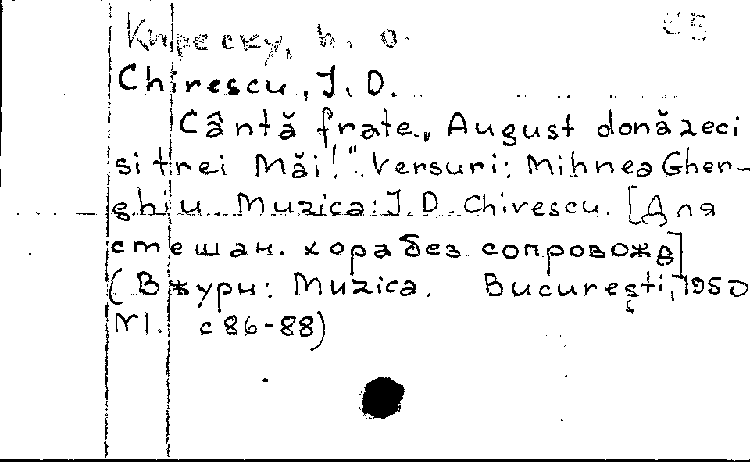 Киреску, И. О. С5
Chirescu, J. D.
Cântă frate „ August donă zeci
si trei Măi!" Versuri: Mihnea Gher-
ghiu Muzica: J. D. Chirescu. [Для
смешан. хора без сопровожд]
(В журн: Muzica. Bucureşti, 1950
N1. с 86-88)